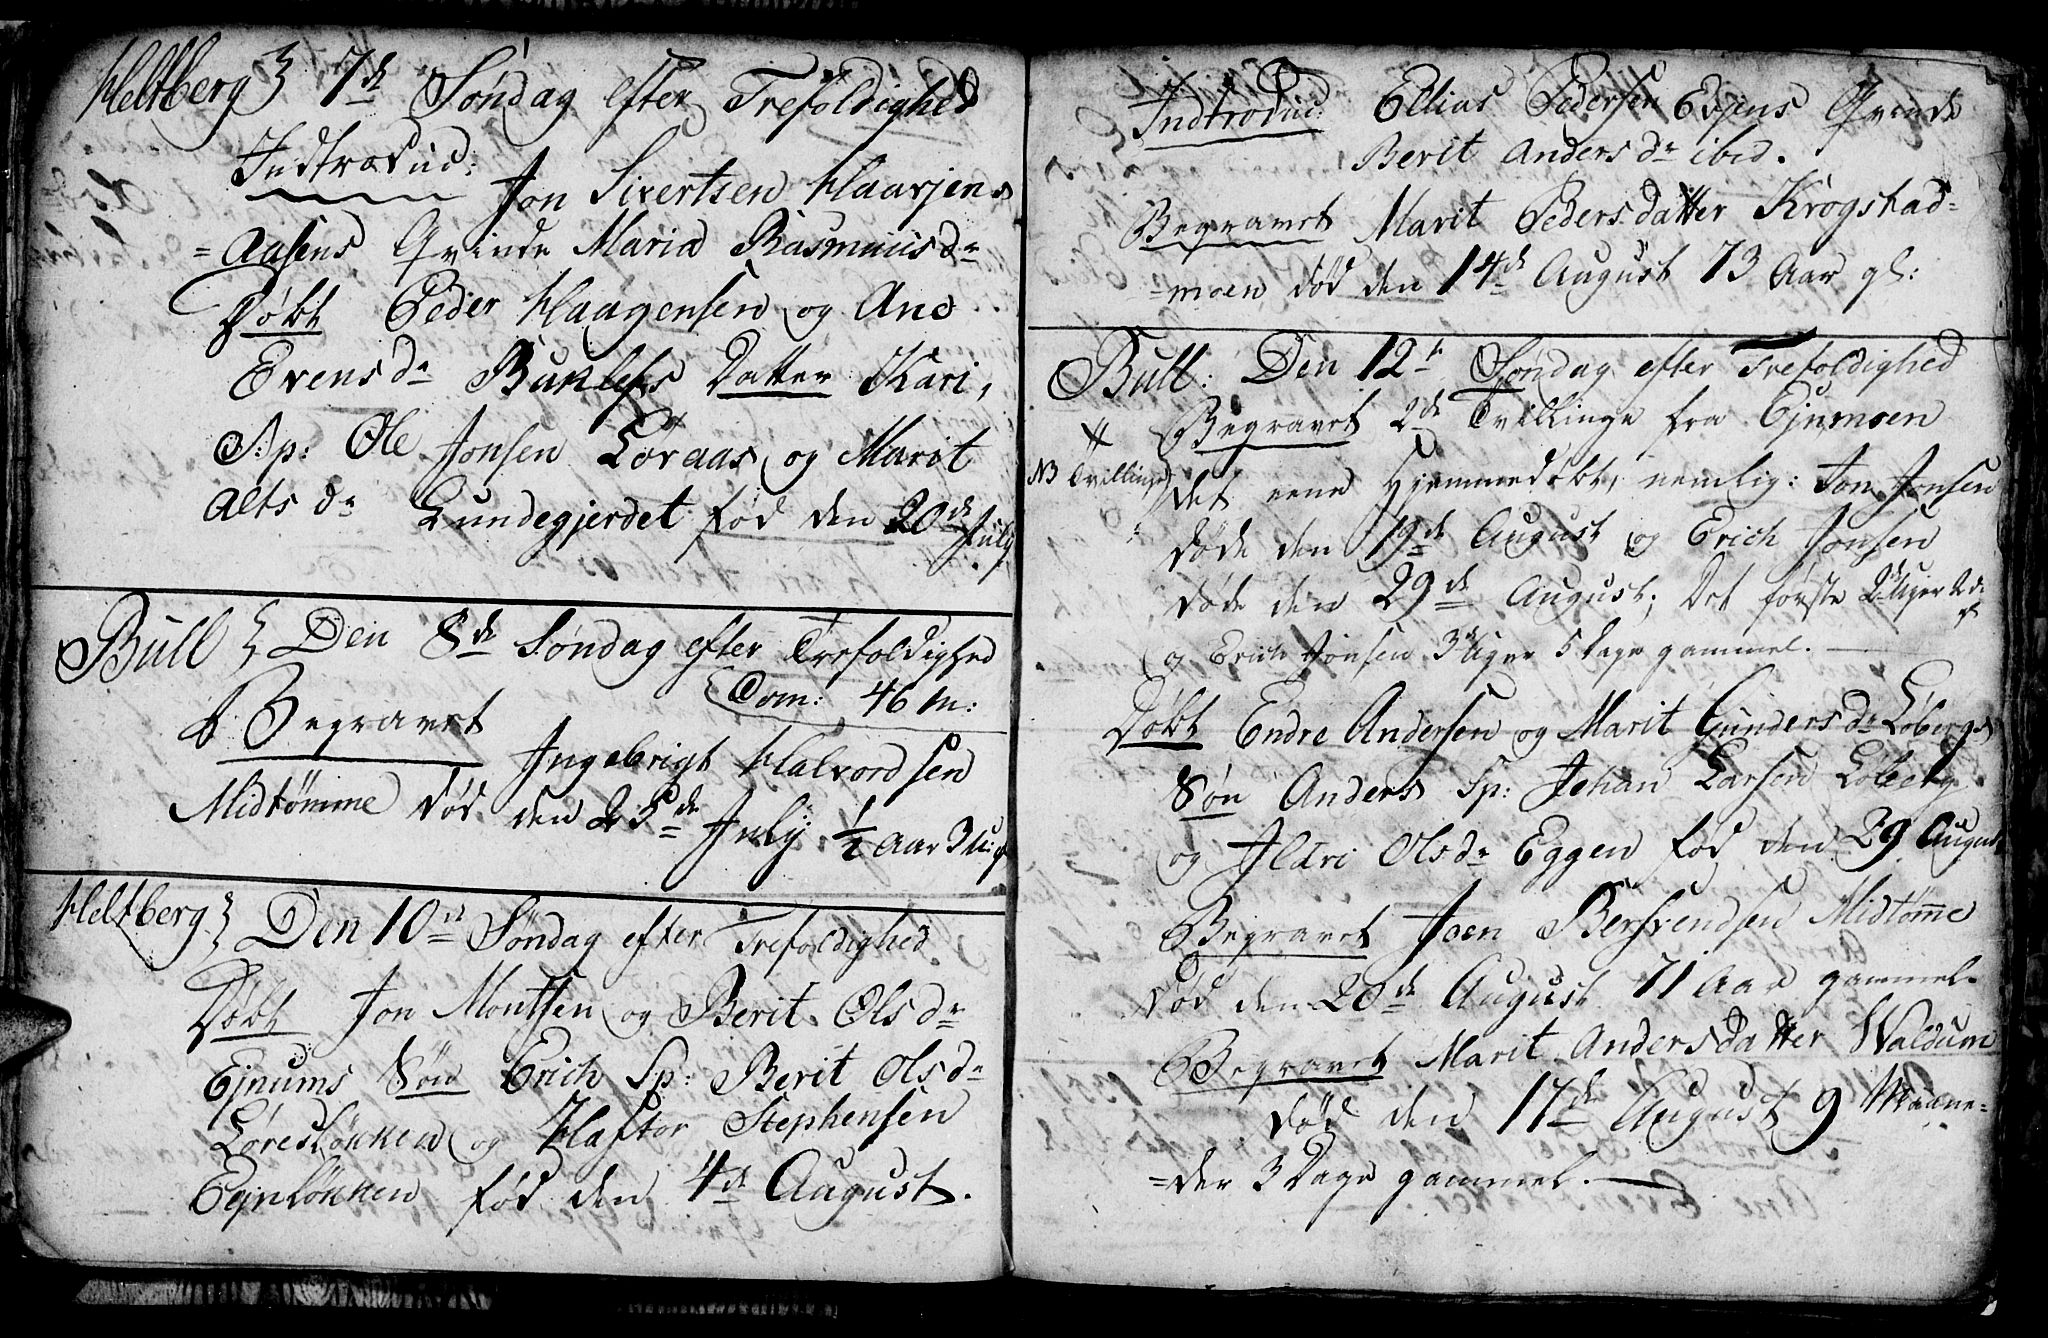 Heltberg } 7de Søndag efter Trefoldighed
Indtroduc:
Jon Sivertsen Haarjens
=Aasens Qvinde Maria Rasmuusdr
Døbt Peder Haagensen og Ane
Evensdr Buklefs Datter Kari,
S:p: Ole Jonsen Løraas og Marit
Alts dr Lundegjerdet fød den 20de July
Bull } Den 8de Søndag efter Trefoldighed
Tom: 46 M:
Begravet
Ingebrigt Halvordsen
Midtømme død den 25de July ½ Aar 3 U: g
Heltberg } Den 10de Søndag efter Trefoldighed
Døbt Jon Montsen og Berit Olsdr
Ejnums Søn Erich Sp: Berit Olsdr
Løresløkken og Haftor Stephensen
Ejnløkken fød den 4de August.
Indtroduc: Ellias Pedersen Espens Qvinde
Berit Anders dr ibid.
Begravet Marit Peders datter Krogstad=
=moen død den 14de August 73 Aar gl:
Bull: Den 12te Søndag efter Trefoldighed
Begravet 2de Tvillinge fra Ejnmoen
NB Tvillinge det eene Hjemmedøbt, nemlig: Jon Jonsen
døde den 19de August og Erich Jonsen
døde den 29de August; Det første 2de Uger 2 d:
og Erich Jonsen 3de Uger 5 Dage gammel.
Døbt Endre Andersen og Marit Gunders dr Løbergs
Søn Anders Sp: Johan Larsen Løberg
og Ildri Olsdr Eggen fød den 29 August
Begravet Joen Bersvendsen Midtømme
død den 20de August 71 Aar gammel.
Begravet Marit Andersdatter Waldum
død den 17de August 9 Maane=
=der 3 Dage gammel.